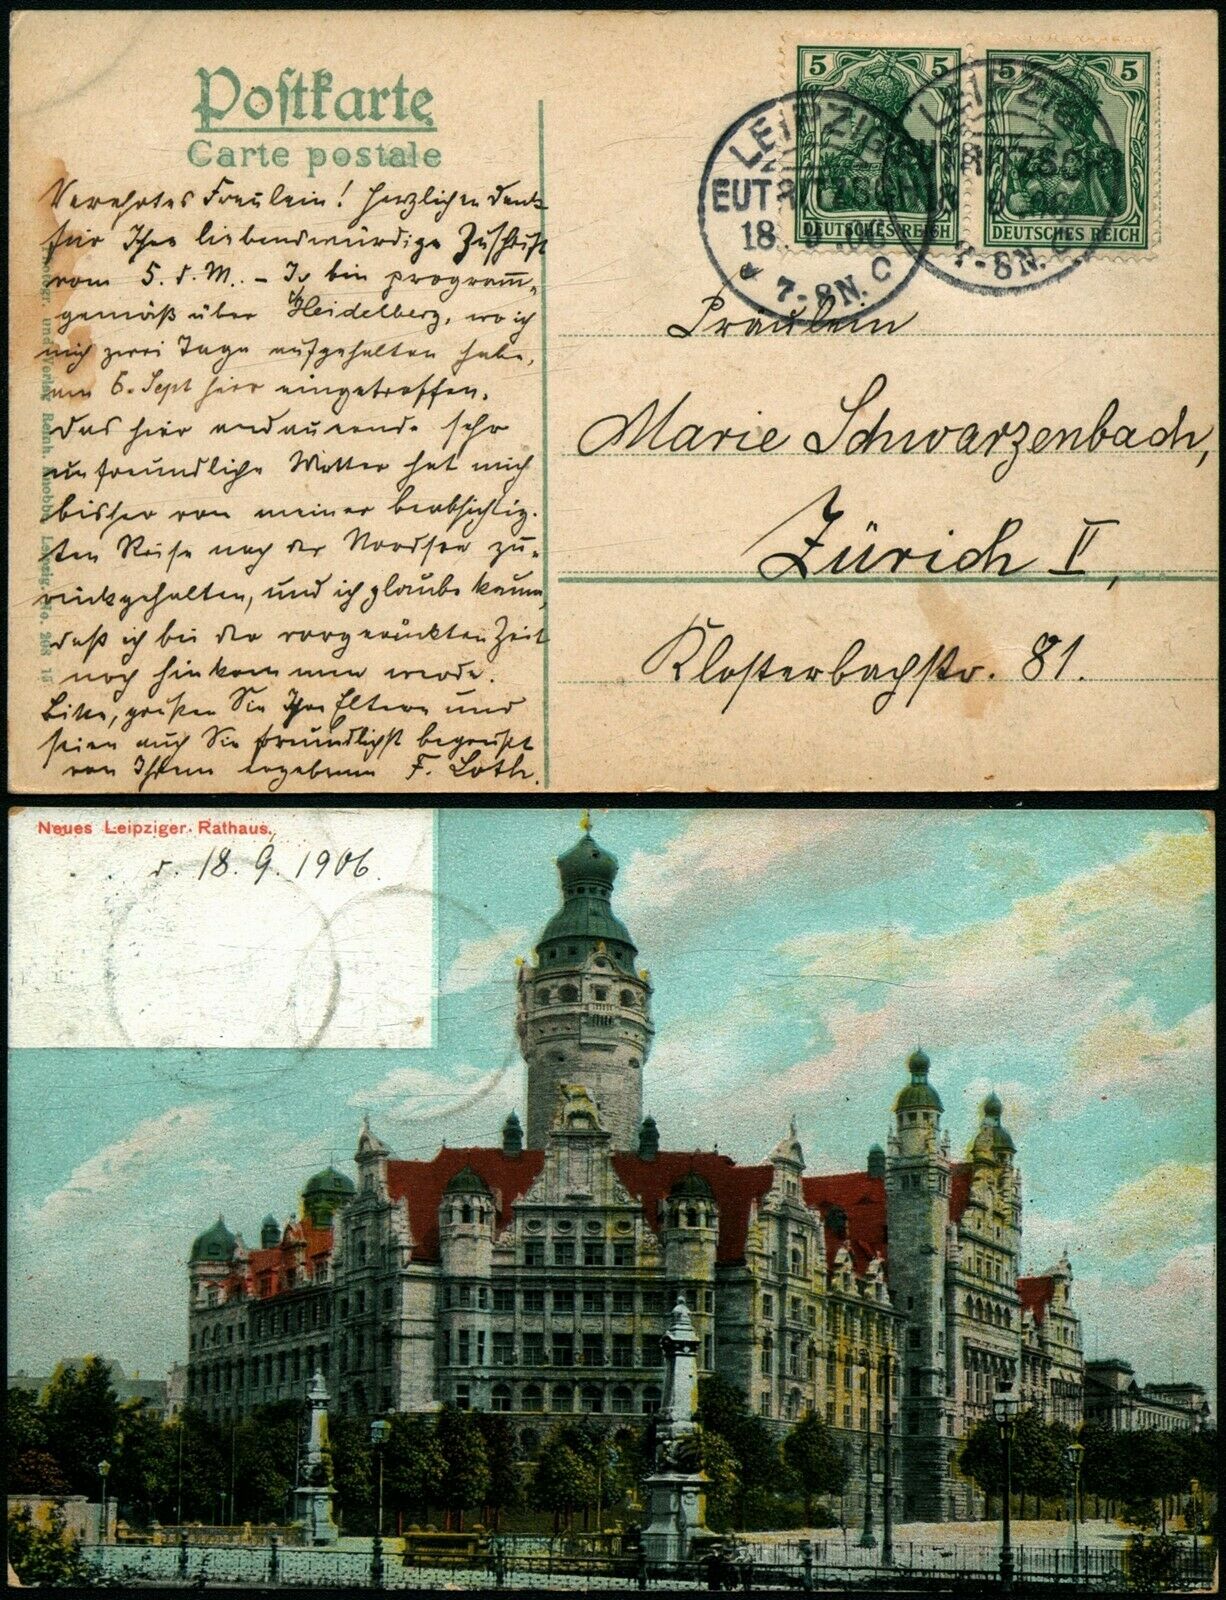 Postkarte
Carte postale
Verehrtes Fräulein! Herzlichen Dank
für Ihre liebenswürdige Zuschrift
vom 5. d. M. – Ich bin programm-
gemäß über Heidelberg, wo ich
mich zwei Tage aufgehalten habe,
am 6. Sept hier eingetroffen.
Das hier andauernde sehr
unfreundliche Wetter hat mich
bisher von meiner beabsichtig-
ten Reise nach der Nordsee zu-
rückgehalten, und ich glaube kaum,
daß ich bei der vorgerückten Zeit
noch hinkommen werde.
Bitte, grüßen Sie Ihre Eltern und
seien auch Sie freundlichst begrüßt
von Ihrem ergebenen F. Loth.
und Verlag Reinh. Leipzig No. 268
5 5
DEUTSCHES REICH
5 5
DEUTSCHES REICH
LEIPZIG
EUTRITZSCH
18. 9. 06
7-8N. C
LEIPZIG
EUTRITZSCH
7-8N. C
Fräulein
Marie Schwarzenbach,
Zürich II,
Klosterbachstr. 81.
Neues Leipziger Rathaus.
d. 18. 9. 1906.